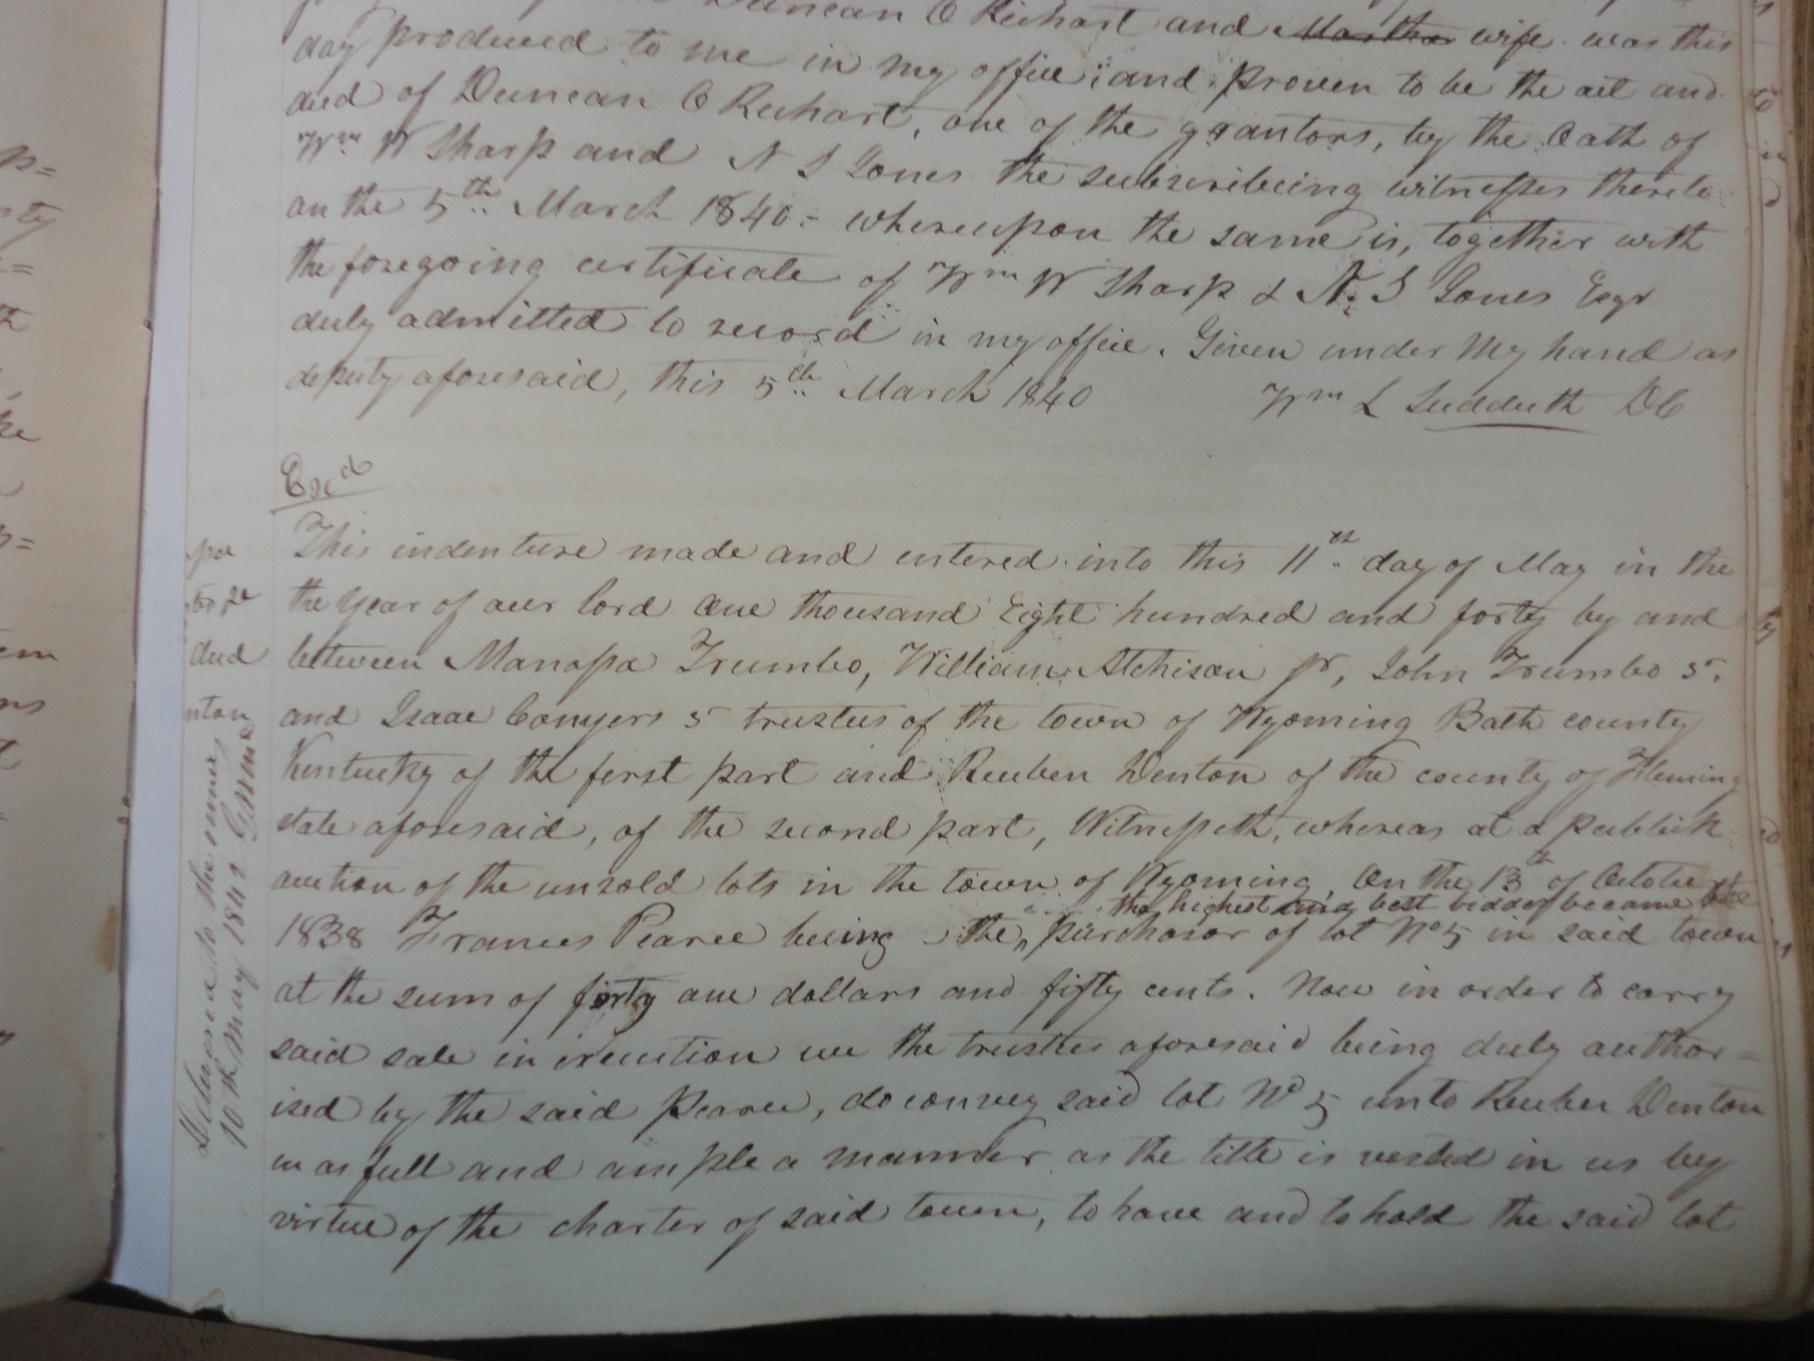 Duncan O Richart and Martha wife was this
day produced to me in my office; and proven to be the act and
deed of Duncan O Richart, one of the grantors, by the Oath of
Wm W Sharp and N S Jones the subscribeing witnesses thereto
on the 5th March 1840 - whereupon the same is, together with
the foregoing certificate of Wm W Sharp & N. S Jones Esqr
duly admitted to record in my office. Given under My hand as
deputy aforesaid, this 5th March 1840 Wm L Sudduth DC
Exd
This indenture made and entered into this 11th day of May in the
the year of our lord One thousand Eight hundred and forty by and
between Manassa Trumbo, William Atchison Jr, John Trumbo Sr
and Isaac Conyers Sr trustees of the town of Wyoming Bath county
Kentucky of the first part and Reuben Denton of the county of Fleming
state aforesaid, of the second part, Witnesseth, whereas at a publick
auction of the unsold lots in the town of Wyoming, On the 13th of October
the highest and best bidder became the
1838 Frances Pearce being the purchasor of lot No 5 in said town
at the sum of forty one dollars and fifty cents. Now in order to carry
said sale in execution we the trustees aforesaid being duly author=
ised by the said Pearce, do convey said lot No 5 unto Reuben Denton
in as full and ample a manner as the title is vested in us by
virtue of the charter of said town, to have and to hold the said lot
deed
nton
Delivered to the owner
10th May 1842